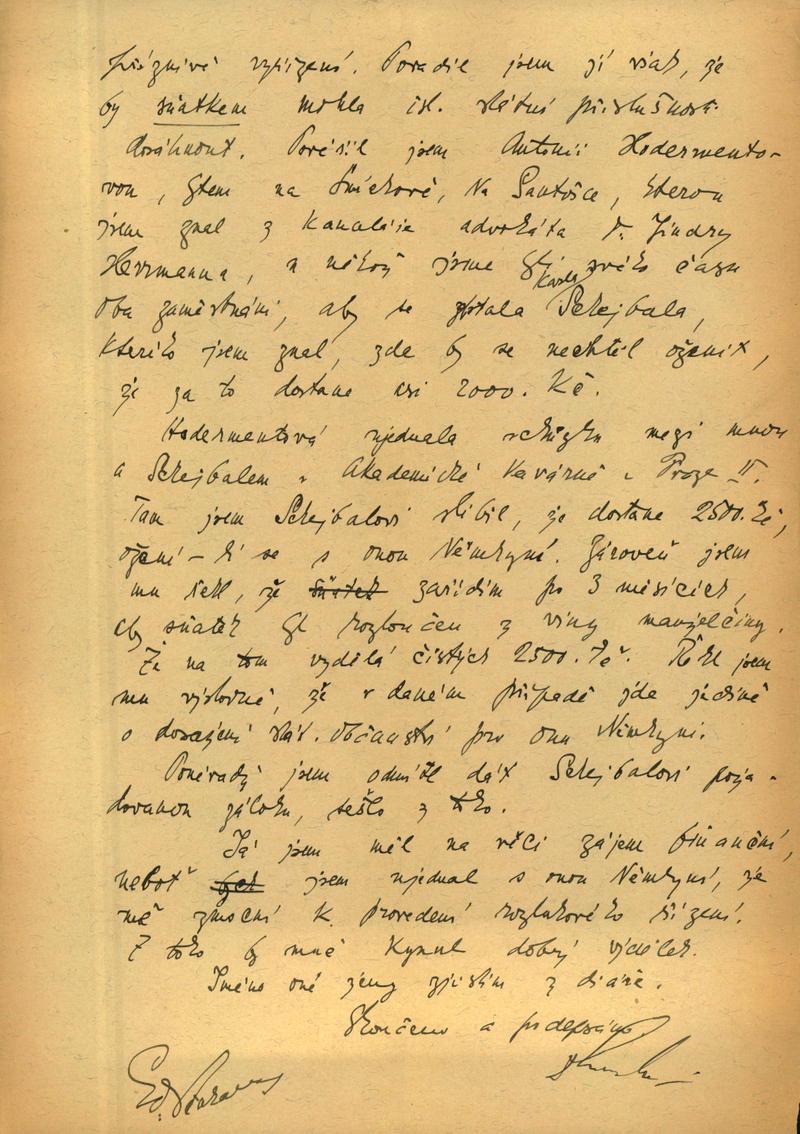 příznivé vyřízení. Poradil jsem jí však, že
by sňatkem mohla čsl. státní příslušnosti
dosáhnout. Pověřil jsem Antonii Hodermento-
vou, bytem na Smíchově, Na Santošce, kterou
jsem znal z kanceláře advokáta Jindry
Herrmanna, u něhož jsme byli svého času
oba zaměstnáni, aby se ptala Karla Schejbala,
kterého jsem znal, zda by se nechtěl oženit,
že za to dostane asi 2000.- Kč.
Hodermentová ujednala schůzku mezi mnou
a Schejbalem v Akademické kavárně v Praze II.
Tam jsem Schejbalovi slíbil, že dostane 2500.- Kč,
ožení-li se s onou Němkyní. Zároveň jsem
mu řekl, že sňatek zařídím po 3 měsících,
aby sňatek byl rozloučen z viny manželčiny.
Že na tom vydělá čistých 2500.- Kč. Řekl jsem
mu výslovně, že v daném případě jde jedině
o dosažení stát. občanství pro onu Němkyni.
Poněvadž jsem odmítl dát Schejbalovi poža-
dovanou zálohu, sešlo z toho.
Já jsem měl na věci zájem finanční,
neboť jsem ujednal s onou Němkyní, že
mě zmocní k provedení rozlukového řízení.
Z toho by mně kynul dobrý výdělek.
Jméno oné ženy zjistím z diáře.
Skončeno a podepsáno.